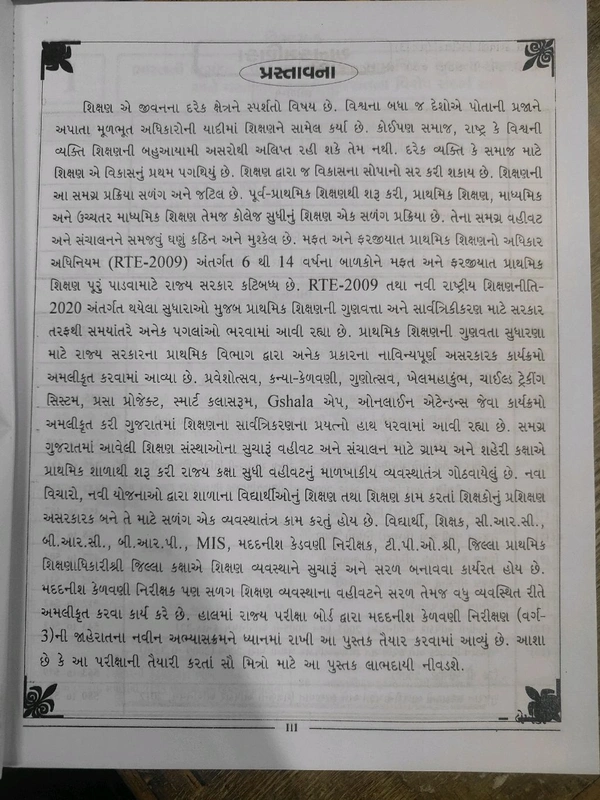 પ્રસ્તાવના
શિક્ષણ એ જીવનના દરેક ક્ષેત્રને સ્પર્શતો વિષય છે. વિશ્વના બધા જ દેશોએ પોતાની પ્રજાને
અપાતા મૂળભૂત અધિકારોની યાદીમાં શિક્ષણને સામેલ કર્યા છે. કોઈપણ સમાજ, રાષ્ટ્ર કે વિશ્વની
વ્યક્તિ શિક્ષણની બહુઆયામી અસરોથી અલિપ્ત રહી શકે તેમ નથી. દરેક વ્યક્તિ કે સમાજ માટે
શિક્ષણ એ વિકાસનું પ્રથમ પગથિયું છે. શિક્ષણ દ્વારા જ વિકાસના સોપાનો સર કરી શકાય છે. શિક્ષણની
આ સમગ્ર પ્રક્રિયા સળંગ અને જટિલ છે. પૂર્વ-પ્રાથમિક શિક્ષણથી શરૂ કરી, પ્રાથમિક શિક્ષણ, માધ્યમિક
અને ઉચ્ચતર માધ્યમિક શિક્ષણ તેમજ કોલેજ સુધીનું શિક્ષણ એક સળંગ પ્રક્રિયા છે. તેના સમગ્ર વહીવટ
અને સંચાલનને સમજવું ઘણું કઠિન અને મુશ્કેલ છે. મફત અને ફરજીયાત પ્રાથમિક શિક્ષણનો અધિકાર
અધિનિયમ (RTE-2009) અંતર્ગત 6 થી 14 વર્ષના બાળકોને મફત અને ફરજીયાત પ્રાથમિક
શિક્ષણ પૂરું પાડવામાટે રાજ્ય સરકાર કટિબધ્ધ છે. RTE-2009 તથા નવી રાષ્ટ્રીય શિક્ષણનીતિ-
2020 અંતર્ગત થયેલા સુધારાઓ મુજબ પ્રાથમિક શિક્ષણની ગુણવત્તા અને સાર્વત્રિકીકરણ માટે સરકાર
તરફથી સમયાંતરે અનેક પગલાંઓ ભરવામાં આવી રહ્યા છે. પ્રાથમિક શિક્ષણની ગુણવતા સુધારણા
માટે રાજ્ય સરકારના પ્રાથમિક વિભાગ દ્વારા અનેક પ્રકારના નાવિન્યપૂર્ણ અસરકારક કાર્યક્રમો
અમલીકૃત કરવામાં આવ્યા છે. પ્રવેશોત્સવ, કન્યા-કેળવણી, ગુણોત્સવ, ખેલમહાકુંભ, ચાઈલ્ડ ટ્રેકીંગ
સિસ્ટમ, પ્રસા પ્રોજેક્ટ, સ્માર્ટ કલાસરૂમ, Gshala એપ, ઓનલાઈન એટેન્ડન્સ જેવા કાર્યક્રમો
અમલીકૃત કરી ગુજરાતમાં શિક્ષણના સાર્વત્રિકરણના પ્રયત્નો હાથ ધરવામાં આવી રહ્યા છે. સમગ્ર
ગુજરાતમાં આવેલી શિક્ષણ સંસ્થાઓના સુચારૂં વહીવટ અને સંચાલન માટે ગ્રામ્ય અને શહેરી કક્ષાએ
પ્રાથમિક શાળાથી શરૂ કરી રાજ્ય કક્ષા સુધી વહીવટનું માળખાકીય વ્યવસ્થાતંત્ર ગોઠવાયેલું છે. નવા
વિચારો, નવી યોજનાઓ દ્વારા શાળાના વિદ્યાર્થીઓનું શિક્ષણ તથા શિક્ષણ કામ કરતાં શિક્ષકોનું પ્રશિક્ષણ
અસરકારક બને તે માટે સળંગ એક વ્યવસ્થાતંત્ર કામ કરતું હોય છે. વિદ્યાર્થી, શિક્ષક, સી.આર.સી.,
બી.આર.સી., બી.આર.પી., MIS, મદદનીશ કેડવણી નિરીક્ષક, ટી.પી.ઓ.શ્રી, જિલ્લા પ્રાથમિક
શિક્ષણાધિકારીશ્રી જિલ્લા કક્ષાએ શિક્ષણ વ્યવસ્થાને સુચારૂં અને સરળ બનાવવા કાર્યરત હોય છે.
મદદનીશ કેળવણી નિરીક્ષક પણ સળગ શિક્ષણ વ્યવસ્થાના વહીવટને સરળ તેમજ વધુ વ્યવસ્થિત રીતે
અમલીકૃત કરવા કાર્ય કરે છે. હાલમાં રાજ્ય પરીક્ષા બોર્ડ દ્વારા મદદનીશ કેળવણી નિરીક્ષણ (વર્ગ-
3)ની જાહેરાતના નવીન અભ્યાસક્રમને ધ્યાનમાં રાખી આ પુસ્તક તૈયાર કરવામાં આવ્યું છે. આશા
છે કે આ પરીક્ષાની તૈયારી કરતાં સૌ મિત્રો માટે આ પુસ્તક લાભદાયી નીવડશે.
III